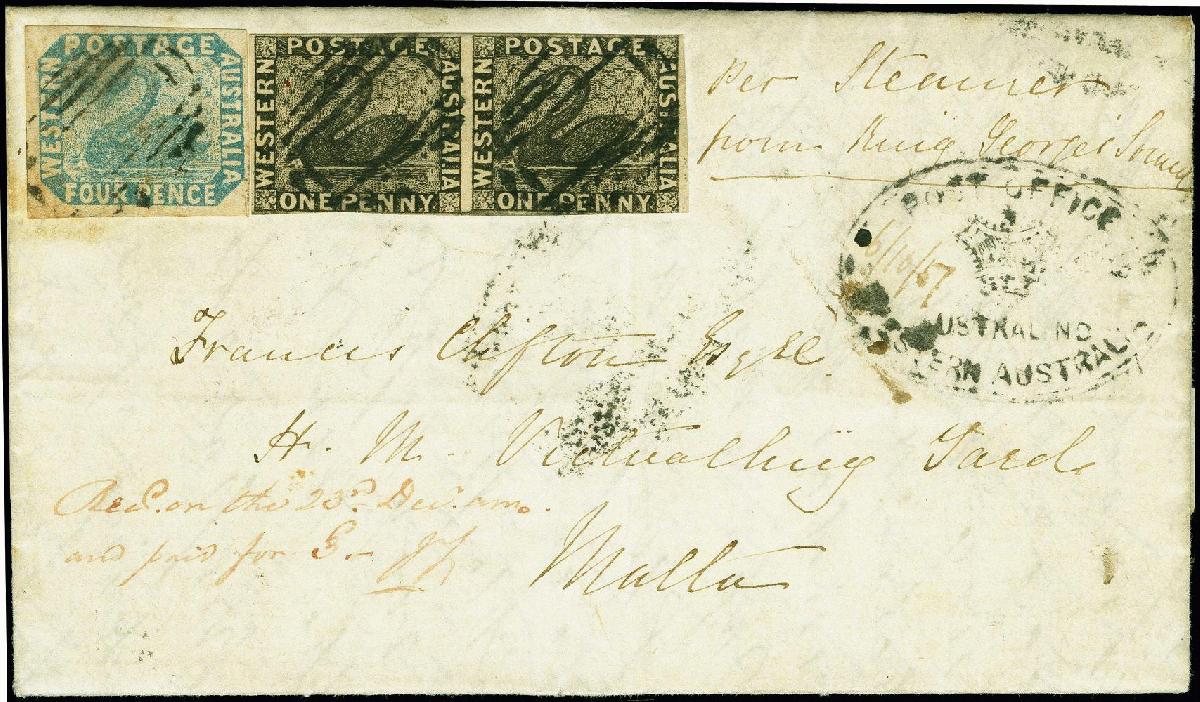 POSTAGE
WESTERN
AUSTRALIA
FOUR PENCE
POSTAGE
WESTERN
AUSTRALIA
ONE PENNY
POSTAGE
WESTERN
AUSTRALIA
ONE PENNY
per Steamer
from King George's Sound
POST OFFICE
6/10/57
AUSTRALIND
WESTERN AUSTRALIA
Francis Clifton Esqre
H. M. Victualling Yard
Malta
Recd. on the 23rd. Decr.
and paid for